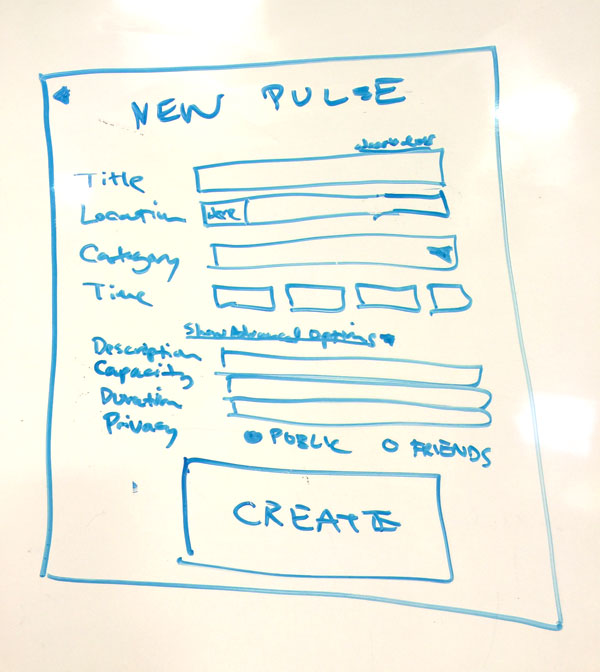 NEW PULSE
Title
Location Here
Category
Time
Show Advanced Options
Description
Capacity
Duration
Privacy
PUBLIC FRIENDS
CREATE